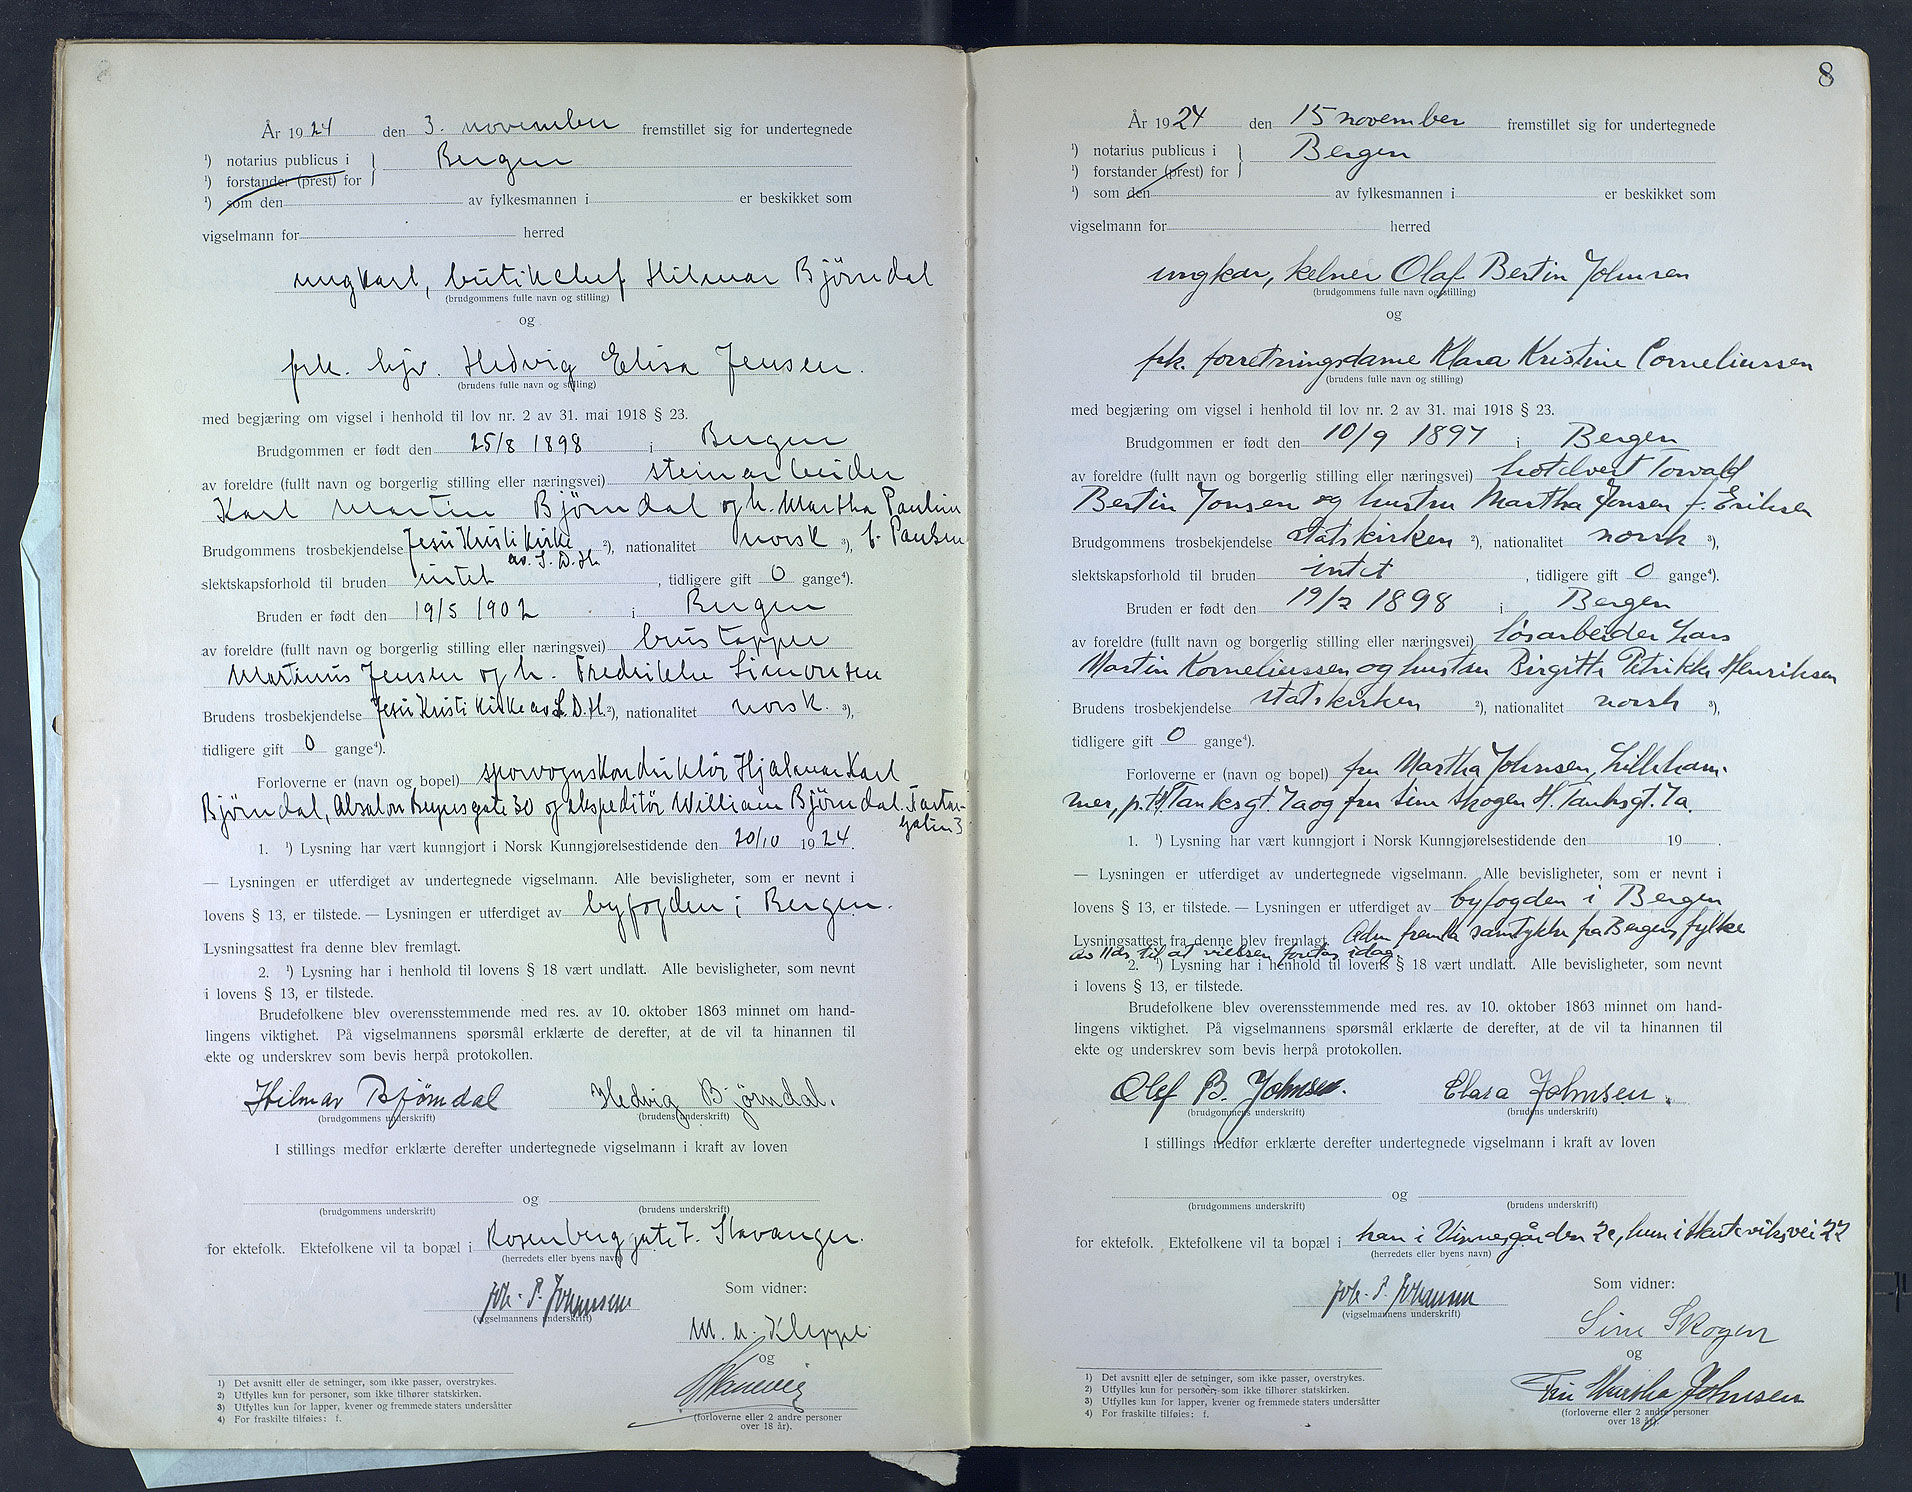 8
År 1924 den 3. november fremstillet sig for undertegnede
¹) notarius publicus i
¹) forstander (prest) for } Bergen
¹) som den av fylkesmannen i er beskikket som
vigselmann for herred
ungkarl, butikchef Hilmar Björndal
(brudgommens fulle navn og stilling)
og
frk. hjv. Hedvig Elisa Jensen.
(brudens fulle navn og stilling)
med begjæring om vigsel i henhold til lov nr. 2 av 31. mai 1918 § 23.
Brudgommen er født den 25/8 1898 i Bergen
av foreldre (fullt navn og borgerlig stilling eller næringsvei) steinarbeider
Karl Martin Björndal og h. Martha Pauline
Brudgommens trosbekjendelse Jesu Kristi Kirke ²), nationalitet norsk ³), f. Paulsen
av S. D. H.
slektskapsforhold til bruden intet, tidligere gift 0 gange⁴).
Bruden er født den 19/5 1902 i Bergen
av foreldre (fullt navn og borgerlig stilling eller næringsvei) brustapper
Martinus Jensen og h. Fredrikke Simonsen
Brudens trosbekjendelse Jesu Kristi Kirke av S. D. H. ²), nationalitet norsk. ³),
tidligere gift 0 gange⁴).
Forloverne er (navn og bopel) sporvognskonduktör Hjalmar Karl
Björndal, Absalon Beyersgate 30 og ekspeditör William Björndal.
1. ¹) Lysning har vært kunngjort i Norsk Kunngjørelsestidende den 20/10 1924.
— Lysningen er utferdiget av undertegnede vigselmann. Alle bevisligheter, som er nevnt i
lovens § 13, er tilstede. — Lysningen er utferdiget av byfogden i Bergen.
Lysningsattest fra denne blev fremlagt.
2. ¹) Lysning har i henhold til lovens § 18 vært undlatt. Alle bevisligheter, som nevnt
i lovens § 13, er tilstede.
Brudefolkene blev overensstemmende med res. av 10. oktober 1863 minnet om hand-
lingens viktighet. På vigselmannens spørsmål erklærte de derefter, at de vil ta hinannen til
ekte og underskrev som bevis herpå protokollen.
Hilmar Bjørndal Hedvig Bjørndal.
(brudgommens underskrift) (brudens underskrift)
I stillings medfør erklærte derefter undertegnede vigselmann i kraft av loven
og
(brudgommens underskrift) (brudens underskrift)
for ektefolk. Ektefolkene vil ta bopæl i Rosenberggate 7. Stavanger.
(herredets eller byens navn)
Joh. P. Johansen Som vidner:
(vigselmannens underskrift)
M. H. Kleppe
og
(forloverne eller 2 andre personer
over 18 år).
1) Det avsnitt eller de setninger, som ikke passer, overstrykes.
2) Utfylles kun for personer, som ikke tilhører statskirken.
3) Utfylles kun for lapper, kvener og fremmede staters undersåtter
4) For fraskilte tilføies: f.
8
År 1924 den 15 november fremstillet sig for undertegnede
¹) notarius publicus i
¹) forstander (prest) for } Bergen
¹) som den av fylkesmannen i er beskikket som
vigselmann for herred
ungkar, kelner Olaf Bertin Johnsen
(brudgommens fulle navn og stilling)
og
frk. forretningsdame Klara Kristine Corneliussen
(brudens fulle navn og stilling)
med begjæring om vigsel i henhold til lov nr. 2 av 31. mai 1918 § 23.
Brudgommen er født den 10/9 1897 i Bergen
av foreldre (fullt navn og borgerlig stilling eller næringsvei) hotelvert Torvald
Bertin Jonsen og hustru Martha Jonsen f. Eriksen
Brudgommens trosbekjendelse statskirken ²), nationalitet norsk ³),
slektskapsforhold til bruden intet, tidligere gift 0 gange⁴).
Bruden er født den 19/2 1898 i Bergen
av foreldre (fullt navn og borgerlig stilling eller næringsvei) løsarbeider Lars
Martin Korneliussen og hustru Birgitte Petrikke Henriksen
Brudens trosbekjendelse statskirken ²), nationalitet norsk ³),
tidligere gift 0 gange⁴).
Forloverne er (navn og bopel) fru Martha Johnsen, Lilleham-
mer, p.t. H. Tanksgt. 7a og fru Sine Skogen H. Tanksgt. 7a.
1. ¹) Lysning har vært kunngjort i Norsk Kunngjørelsestidende den 19 .
— Lysningen er utferdiget av undertegnede vigselmann. Alle bevisligheter, som er nevnt i
lovens § 13, er tilstede. — Lysningen er utferdiget av byfogden i Bergen
Lysningsattest fra denne blev fremlagt. samtykke fra Bergens fylke
til at vielsen foretas idag.
2. ¹) Lysning har i henhold til lovens § 18 vært undlatt. Alle bevisligheter, som nevnt
i lovens § 13, er tilstede.
Brudefolkene blev overensstemmende med res. av 10. oktober 1863 minnet om hand-
lingens viktighet. På vigselmannens spørsmål erklærte de derefter, at de vil ta hinannen til
ekte og underskrev som bevis herpå protokollen.
Olaf B. Johnsen. Clara Johnsen.
(brudgommens underskrift) (brudens underskrift)
I stillings medfør erklærte derefter undertegnede vigselmann i kraft av loven
og
(brudgommens underskrift) (brudens underskrift)
for ektefolk. Ektefolkene vil ta bopæl i han i Vinnesgården 2c, hun i Skuteviksvei 22
(herredets eller byens navn)
Joh. P. Johansen Som vidner:
(vigselmannens underskrift)
Sine Skogen
og
Fru Martha Johnsen
(forloverne eller 2 andre personer
over 18 år).
1) Det avsnitt eller de setninger, som ikke passer, overstrykes.
2) Utfylles kun for personer, som ikke tilhører statskirken.
3) Utfylles kun for lapper, kvener og fremmede staters undersåtter
4) For fraskilte tilføies: f.